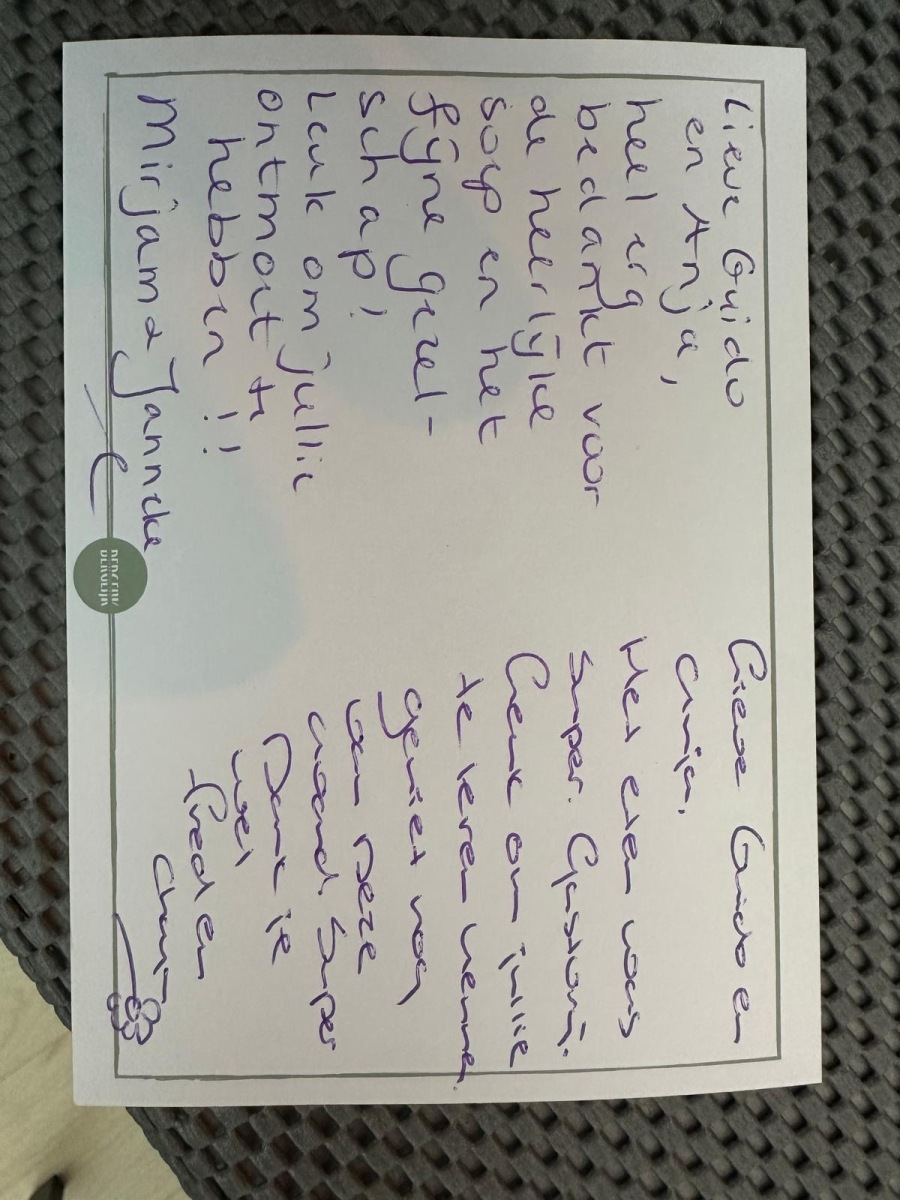 Lieve Guido
en Anja,
heel erg
bedankt voor
de heerlijke
soep en het
fijne gezel-
schap!
Leuk om jullie
ontmoet te
hebben!!
Mirjam & Janneke
Lieve Guido en
Anja.
Het eten was
super.
Leuk om jullie
te leren kennen
geniet nog
van deze
avond. Super
Dank je
wel
Fred en
BERGEIJK